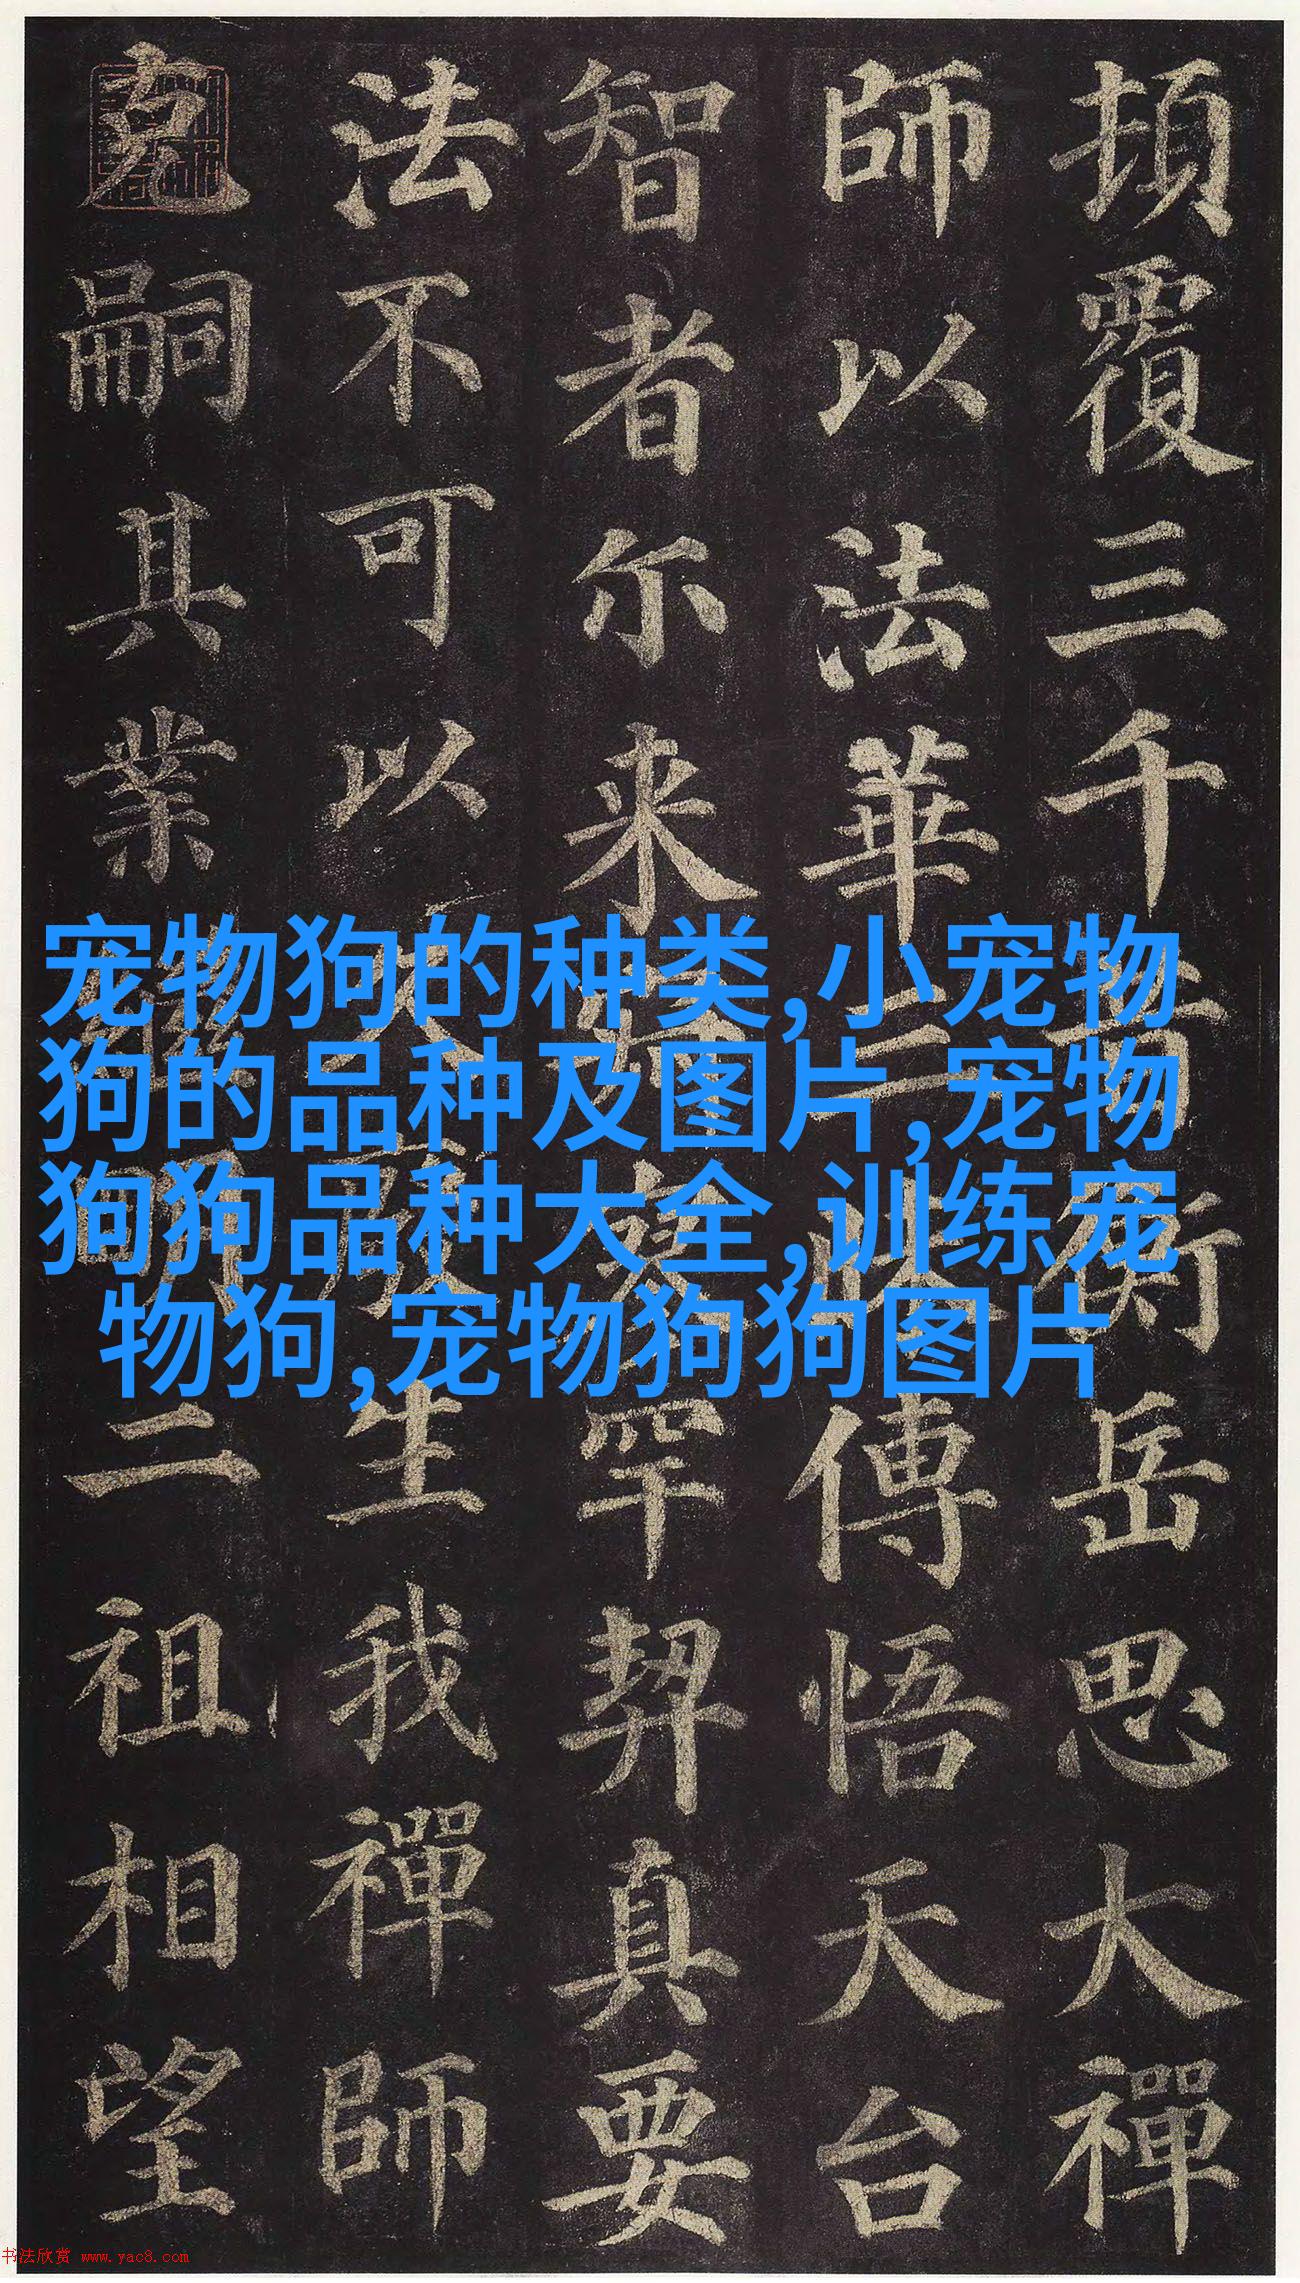 宠物狗的种类,小宠物
狗的品种及图片,宠物
狗狗品种大全,训练宠
物狗,宠物狗狗图片
頓覆三千昔衡岳思大禪
師以法華三昧傳悟天台
智者尔来寂寥罕契真要
法不可以久廢生我禪師
克嗣其業繼明二祖相望
书法欣赏 www.yac8.com